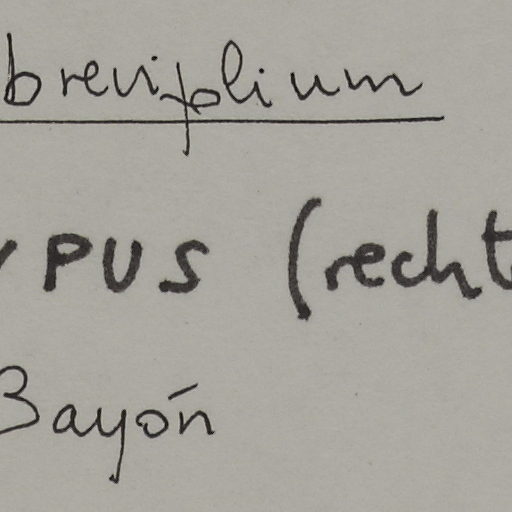 brevifolium
YPUS (recht
Bayón